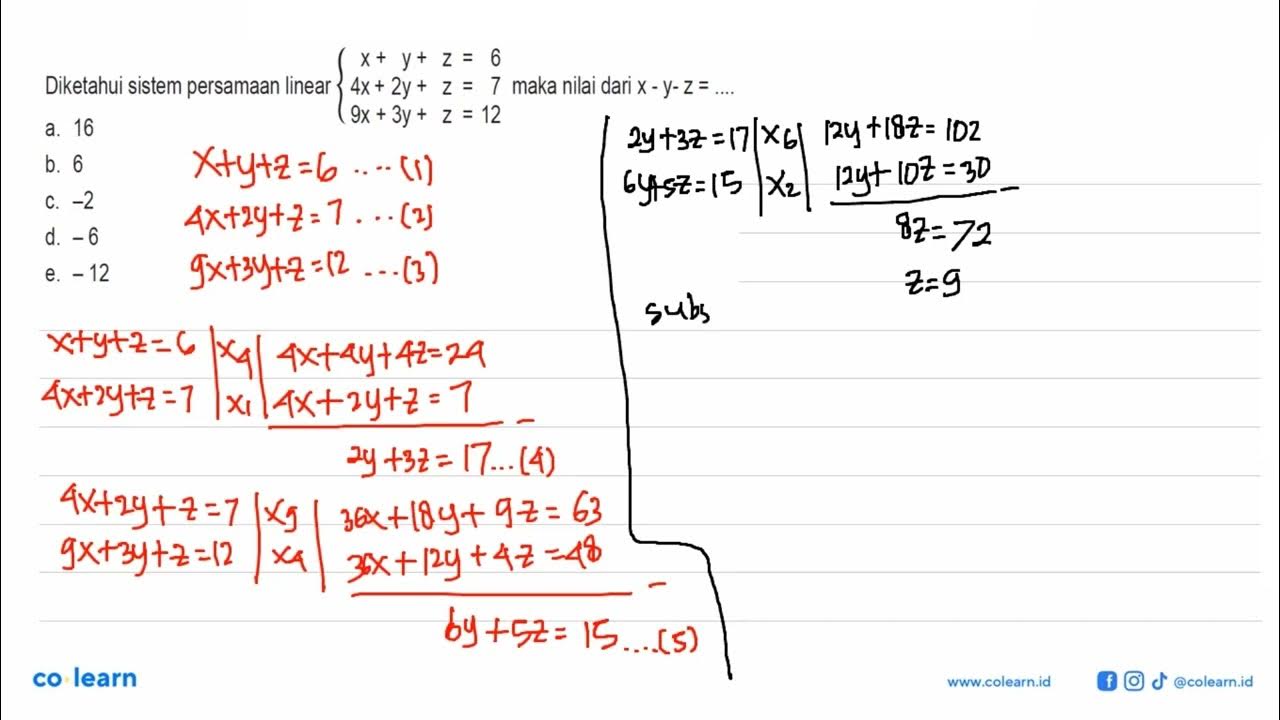 Diketahui sistem persamaan linear { x + y + z = 6
4x + 2y + z = 7 maka nilai dari x - y- z = ....
9x + 3y + z = 12
a. 16
b. 6
c. –2
d. – 6
e. – 12
x+y+z=6 ....(1)
4x+2y+z=7 ...(2)
9x+3y+z=12 ...(3)
x+y+z=6 | x4 | 4x+4y+4z=24
4x+2y+z=7 | x1 | 4x+2y+z=7
–
2y+3z=17...(4)
4x+2y+z=7 | x9 | 36x+18y+9z=63
9x+3y+z=12 | x4 | 36x+12y+4z=48
–
6y+5z=15....(5)
2y+3z=17 | x6 | 12y+18z=102
6y+5z=15 | x2 | 12y+10z=30
–
8z=72
z=9
subs
co·learn
www.colearn.id
@colearn.id